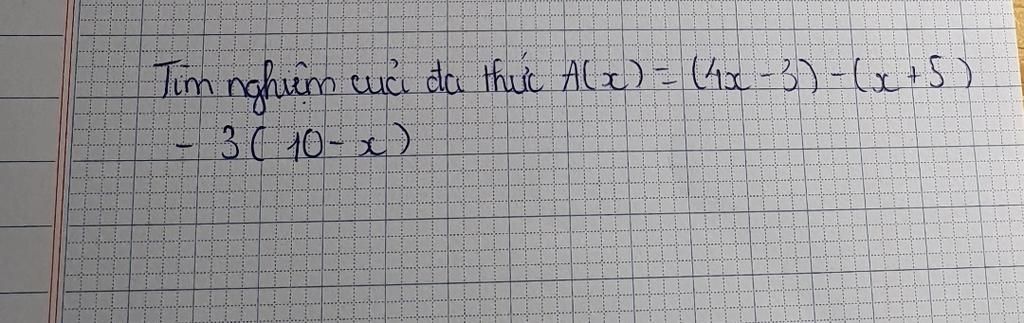 Tìm nghiệm của đa thức A(x) = (4x - 3) - (x + 5)
- 3( 10 - x )